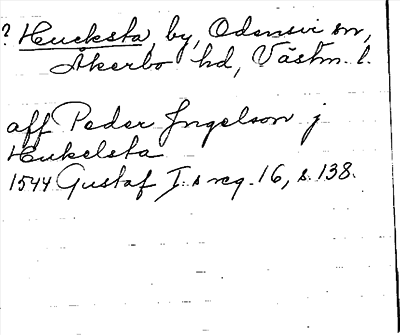 ? Hucksta, by, Odensvi sn,
Åkerbo hd, Västm. l.
aff Peder Jngelson j
Hukelsta
1544 Gustaf I:s reg. 16, s. 138.